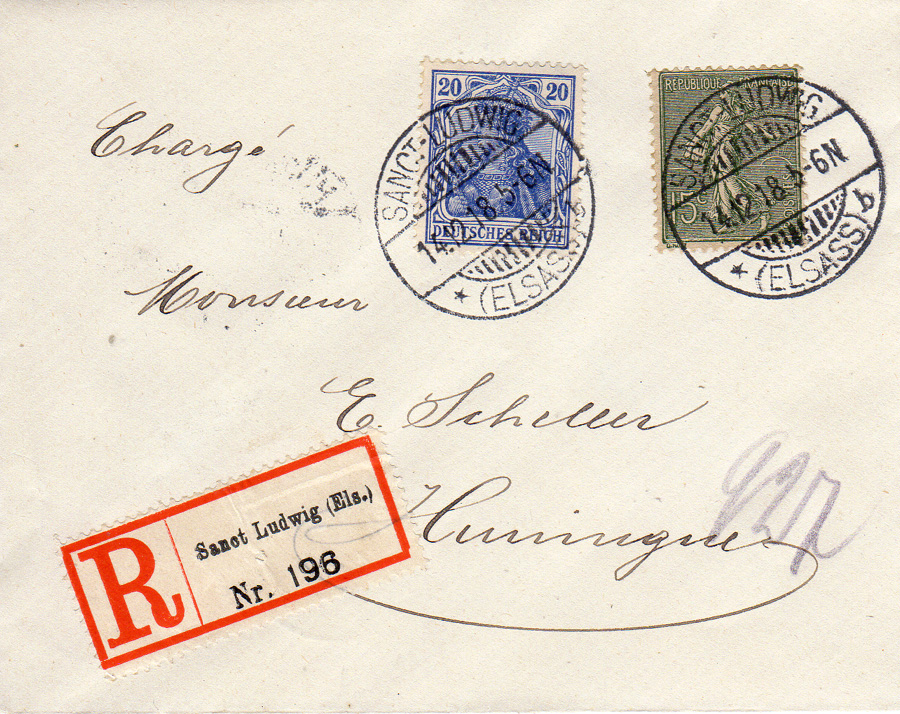 20 20
DEUTSCHES REICH
SANCT-LUDWIG
14.12.18.5-6N
* (ELSASS)
RÉPUBLIQUE FRANÇAISE
SANCT-LUDWIG
14.12.18. -6N
* (ELSASS) b
Chargé
Monsieur
E. Scheller
Huningue
R
Sanct Ludwig (Els.)
Nr. 196